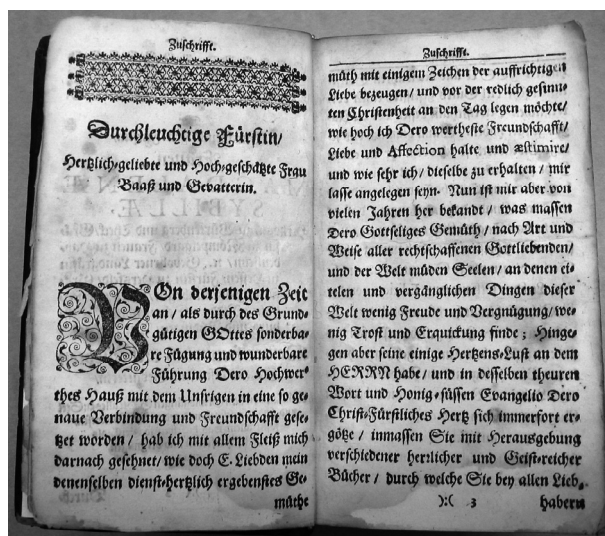 Zuschrifft.
Durchleuchtige Fürstin/
Hertzlich-geliebte und Hoch-geschätzte Frau
Baaß und Gevatterin.
VOn derjenigen Zeit
an / als durch des Grund-
gütigen GOttes sonderba-
re Fügung und wunderbare
Führung Dero Hochwer-
thes Hauß mit dem Unsrigen in eine so ge-
naue Verbindung und Freundschafft gese-
tzet worden / hab ich mit allem Fleiß mich
darnach gesehnet/ wie doch E. Liebden mein
denenselben dienst-hertzlich ergebenstes Ge-
müthe
Zuschrifft.
müth mit einigem Zeichen der auffrichtigen
Liebe bezeugen / und vor der redlich gesinn-
ten Christenheit an den Tag legen möchte/
wie hoch ich Dero wertheste Freundschafft/
Liebe und Affection halte und æstimire/
und wie sehr ich / dieselbe zu erhalten / mir
lasse angelegen seyn. Nun ist mir aber von
vielen Jahren her bekandt / was massen
Dero Gottseliges Gemüth / nach Art und
Weise aller rechtschaffenen Gottliebenden/
und der Welt müden Seelen / an denen ei-
telen und vergänglichen Dingen dieser
Welt wenig Freude und Vergnügung/ we-
nig Trost und Erquickung finde ; Hinge-
gen aber seine einige Hertzens-Lust an dem
HERRN habe / und in desselben theuren
Wort und Honig-süssen Evangelio Dero
Christ-Fürstliches Hertz sich immerfort er-
götze / inmassen Sie mit Herausgebung
verschiedener herrlicher und Geist-reicher
Bücher / durch welche Sie bey allen Lieb-
):( 3 habern